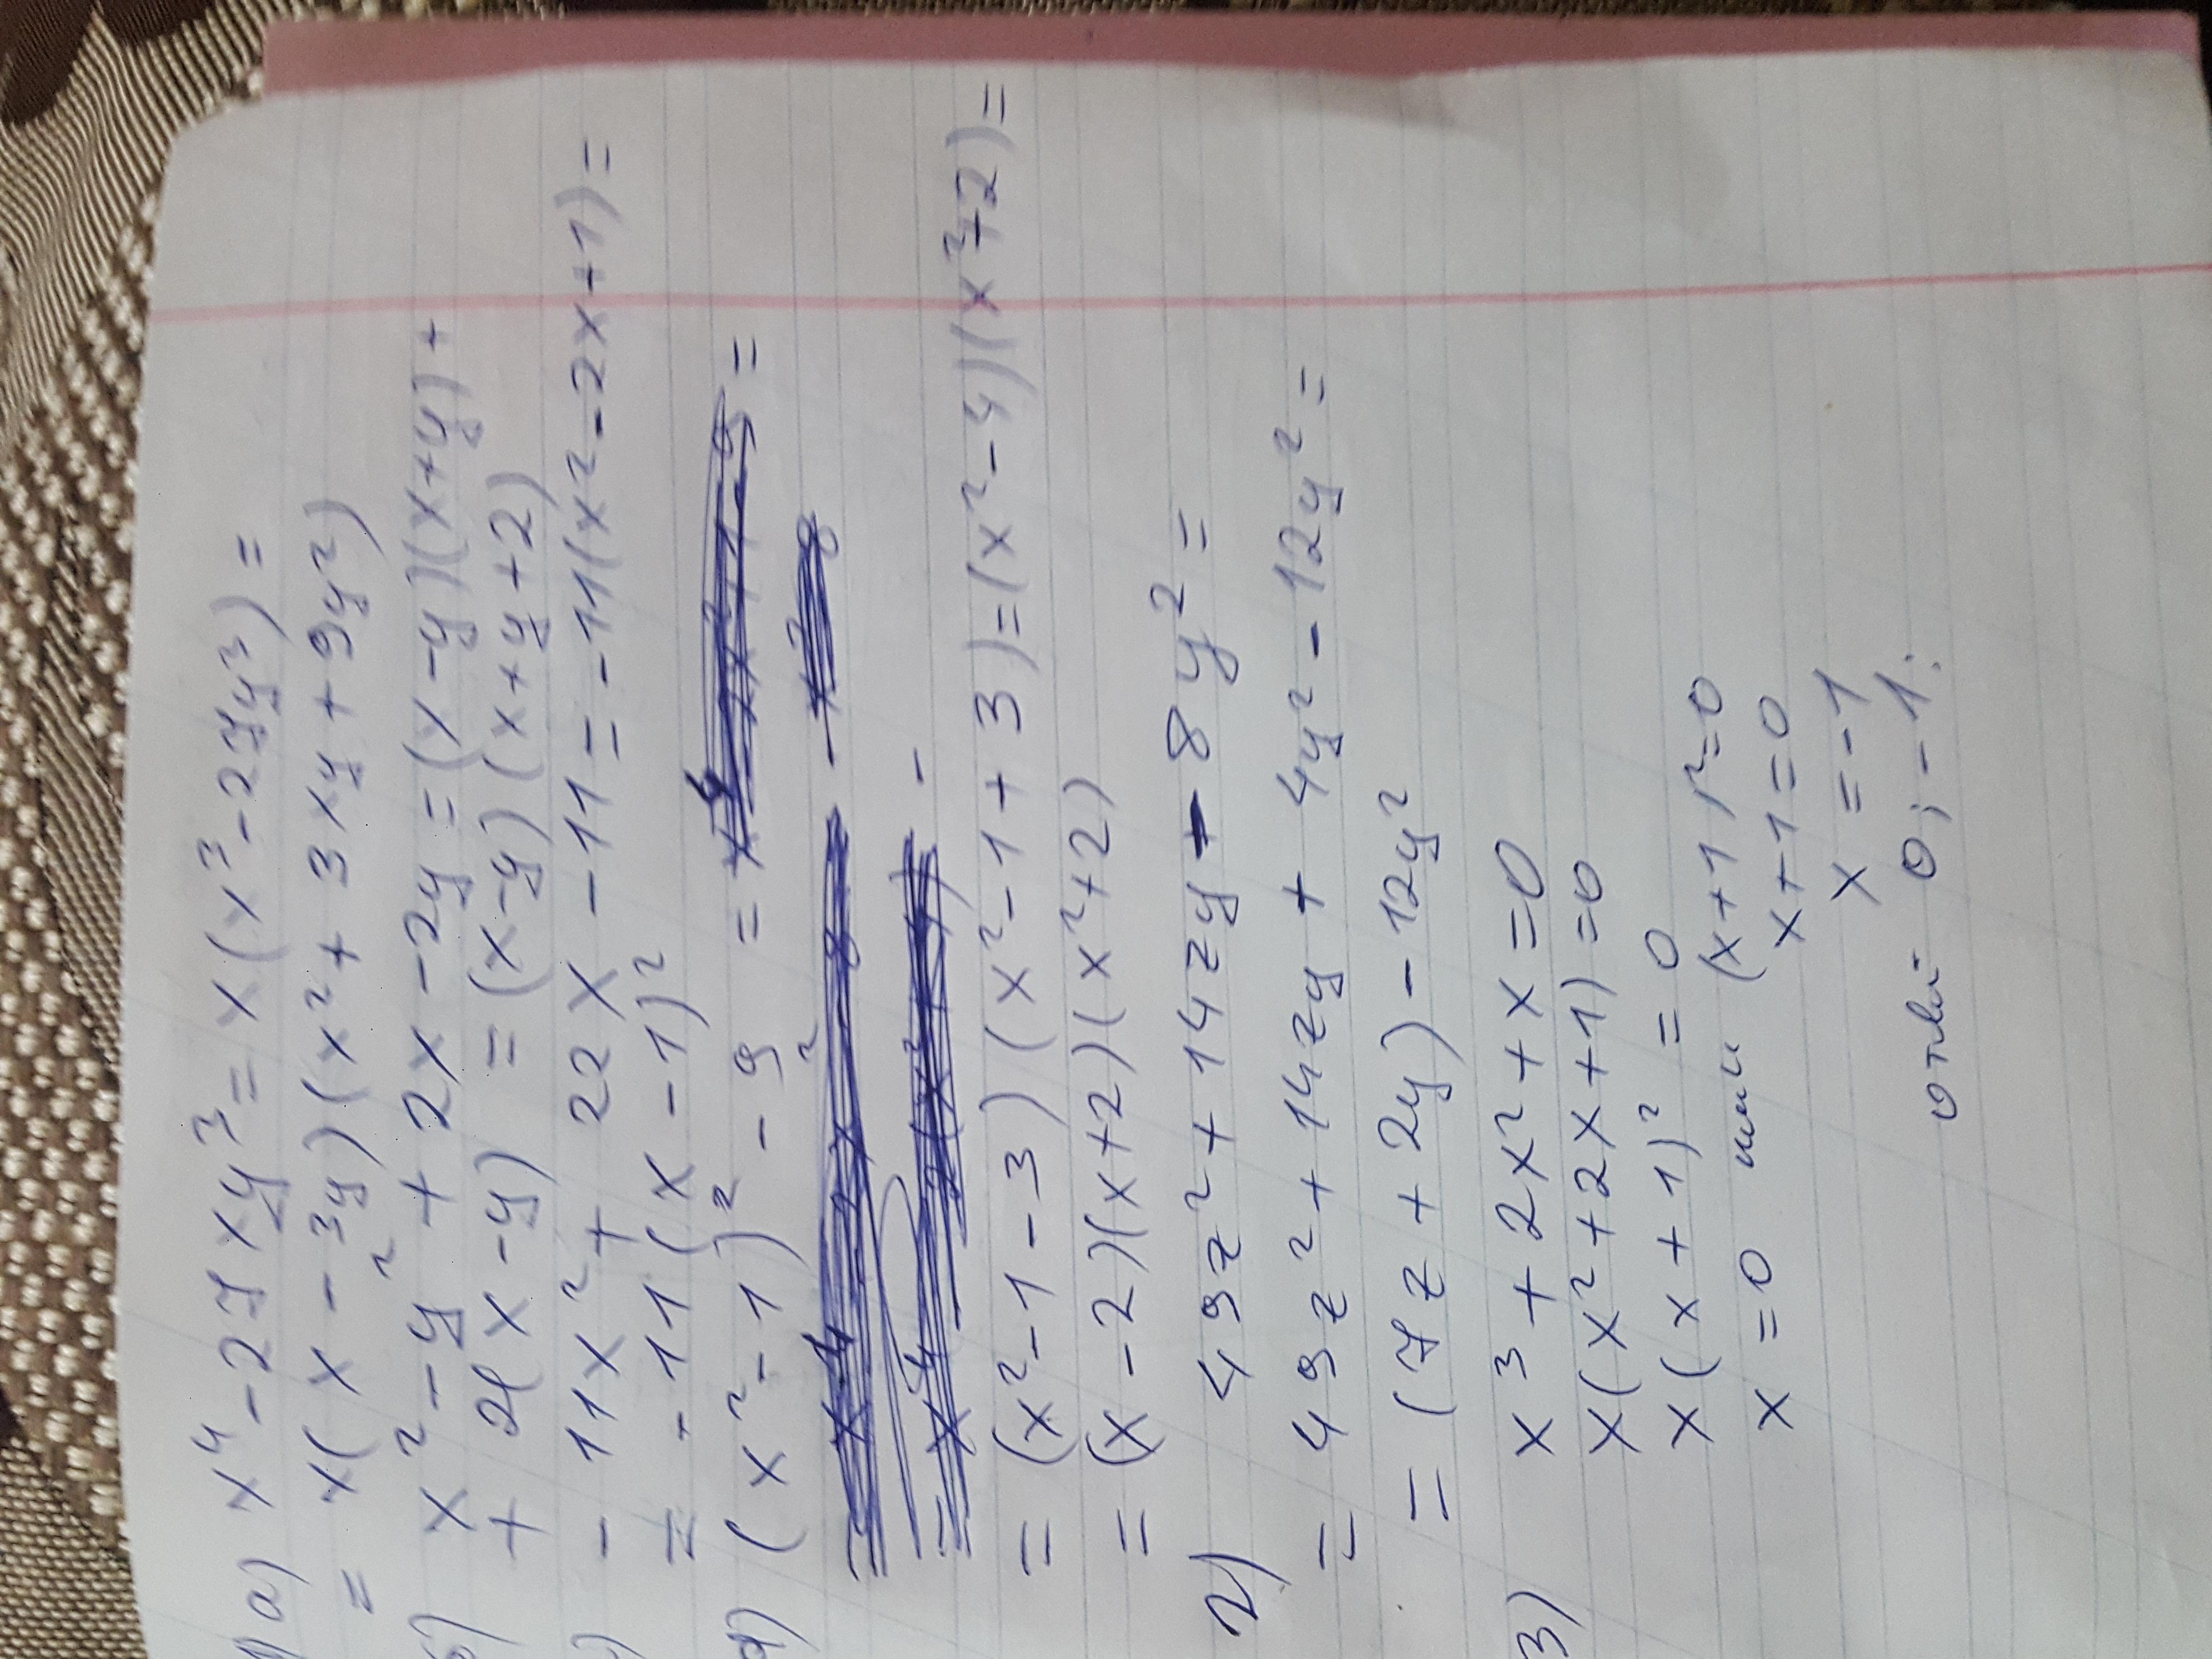 1) а) x⁴ - 27xy³ = x(x³ - 27y³) =
= x(x - 3y)(x² + 3xy + 9y²)
б) x² - y² + 2x - 2y = (x - y)(x + y) +
+ 2(x - y) = (x - y)(x + y + 2)
- 11x² + 22x - 11 = -11(x² - 2x + 1) =
= -11(x - 1)²
(x² - 1)² - 9 =
= (x² - 1 - 3)(x² - 1 + 3) = (x² - 4)(x² + 2) =
= (x - 2)(x + 2)(x² + 2)
2) 49z² + 14zy - 8y² =
= 49z² + 14zy + 4y² - 12y² =
= (7z + 2y) - 12y²
3) x³ + 2x² + x = 0
x(x² + 2x + 1) = 0
x(x + 1)² = 0
x = 0 или (x + 1)² = 0
x + 1 = 0
x = -1
ответ 0; -1.